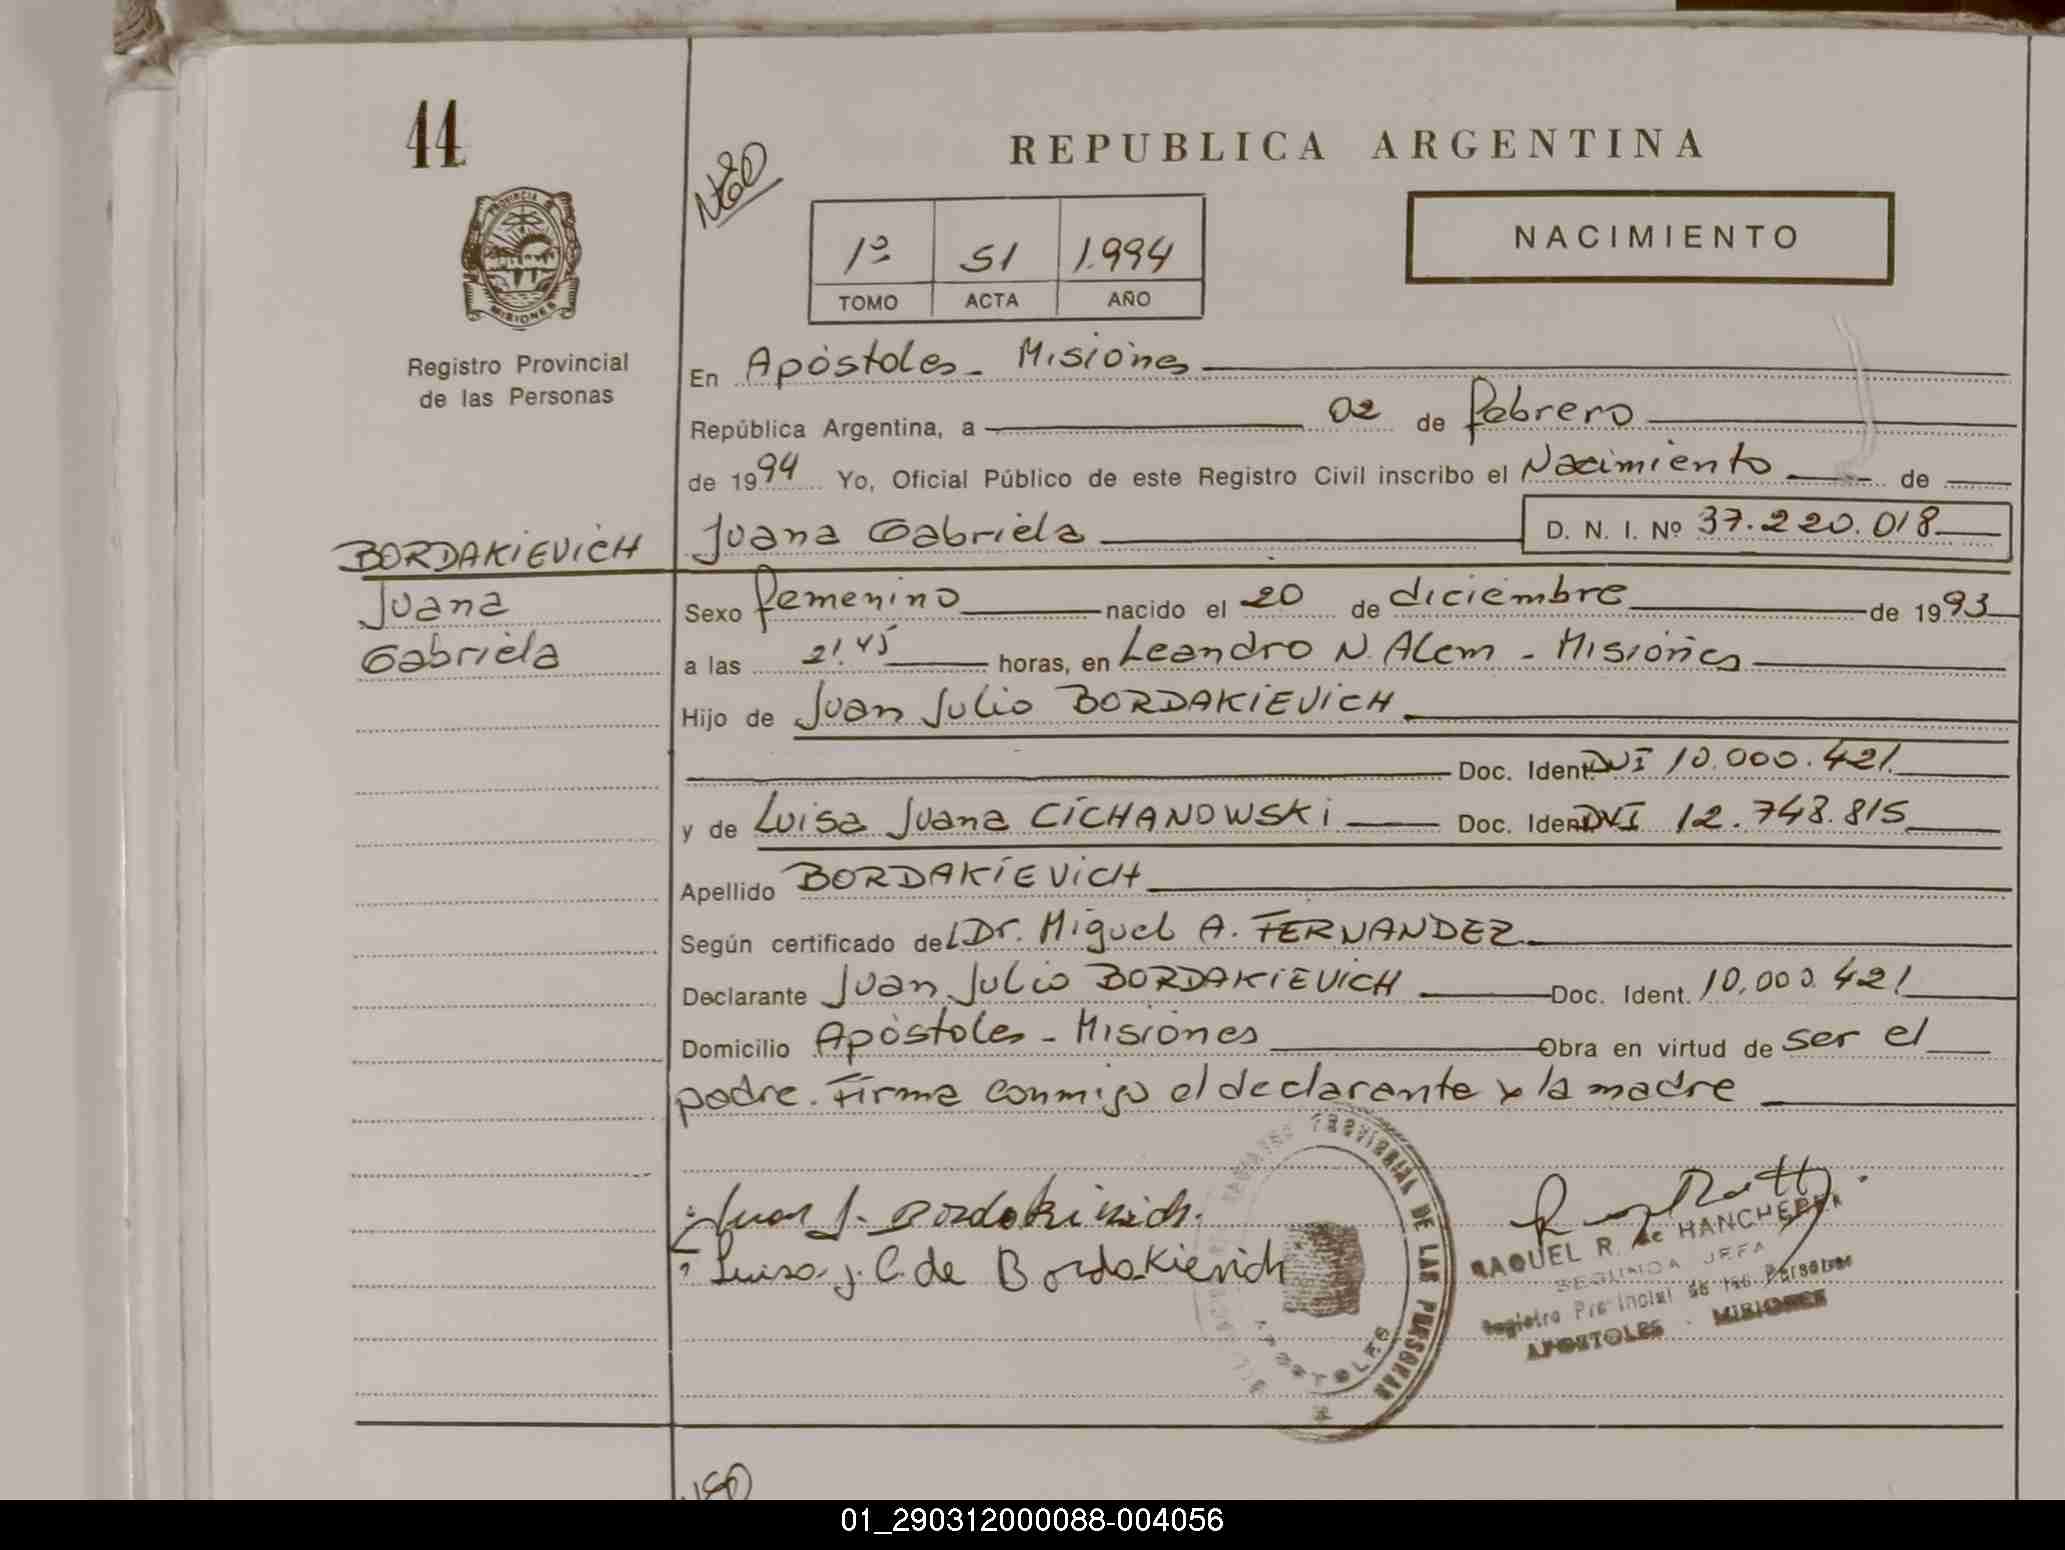 44
REPUBLICA ARGENTINA
NACIMIENTO
1º 51 1.994
TOMO ACTA AÑO
PROVINCIA DE
MISIONES
Registro Provincial
de las Personas
En Apóstoles - Misiones
República Argentina, a 02 de febrero
de 1994 Yo, Oficial Público de este Registro Civil inscribo el Nacimiento de
Juana Gabriela D. N. I. Nº 37.220.018
BORDAKIEVICH
Juana
Gabriela
Sexo femenino nacido el 20 de diciembre de 1993
a las 21.45 horas, en Leandro N. Alem - Misiones
Hijo de Juan Julio BORDAKIEVICH
Doc. Ident DNI 10.000.421
y de Luisa Juana CICHANOWSKI Doc. Ident DNI 12.748.815
Apellido BORDAKIEVICH
Según certificado del Dr. Miguel A. FERNANDEZ
Declarante Juan Julio BORDAKIEVICH Doc. Ident. 10.000.421
Domicilio Apóstoles - Misiones Obra en virtud de ser el
padre. Firma conmigo el declarante y la madre
Juan J. Bordakievich.
Luisa J. C. de Bordakievich
REGISTRO PROVINCIAL DE LAS PERSONAS
APOSTOLES
RAQUEL R. de HANCHERER
SEGUNDA JEFA
Registro Provincial de las Personas
APOSTOLES - MISIONES
01_290312000088-004056